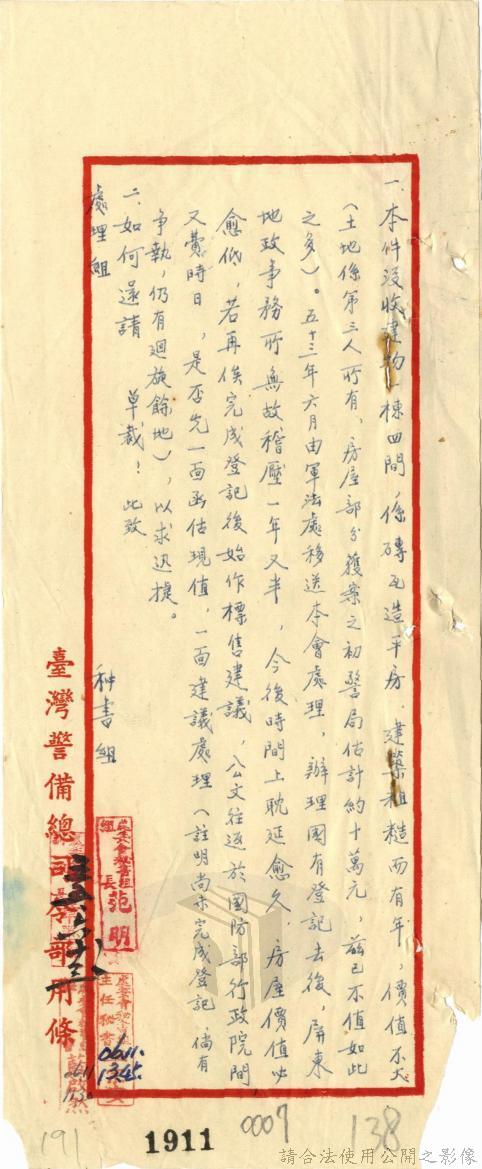 一、本件沒收建物一棟四間，係磚瓦造平房，建築粗糙而有年，價值不大
（土地係第三人所有，房屋部分獲案之初警局估計約十萬元，茲已不值如此
之多）。五十三年六月由軍法處移送本會處理，辦理國有登記去後，屏東
地政事務所無故稽壓一年又半，今後時間上耽延愈久，房屋價值必
愈低，若再俟完成登記後始作標售建議，公文往返於國防部行政院間，
又費時日，是否先一面函估現值，一面建議處理（註明尚未完成登記，倘有
爭執，仍有迴旋餘地），以求迅捷。
二、如何還請 卓裁！ 此致
處理組
秘書組
組長范明
主任秘書
臺灣警備總司令部用條
06.11.
1911
0007
138
191
請合法使用公開之影像